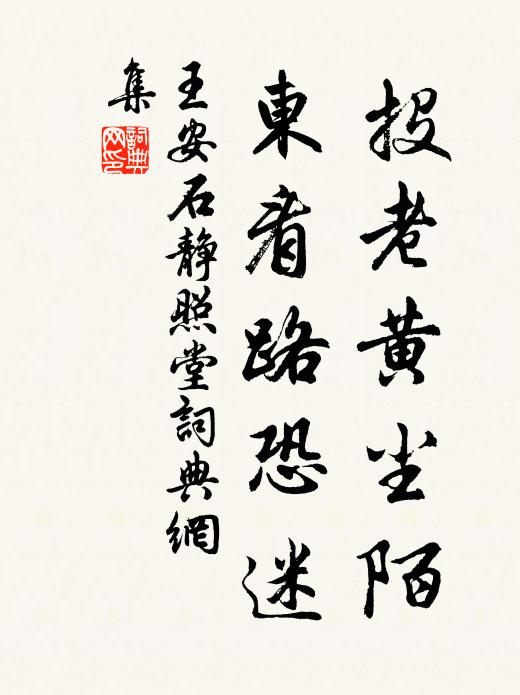 投老黄尘陌
東看路恐迷
王安石静照堂詞典網
集
詞典網印